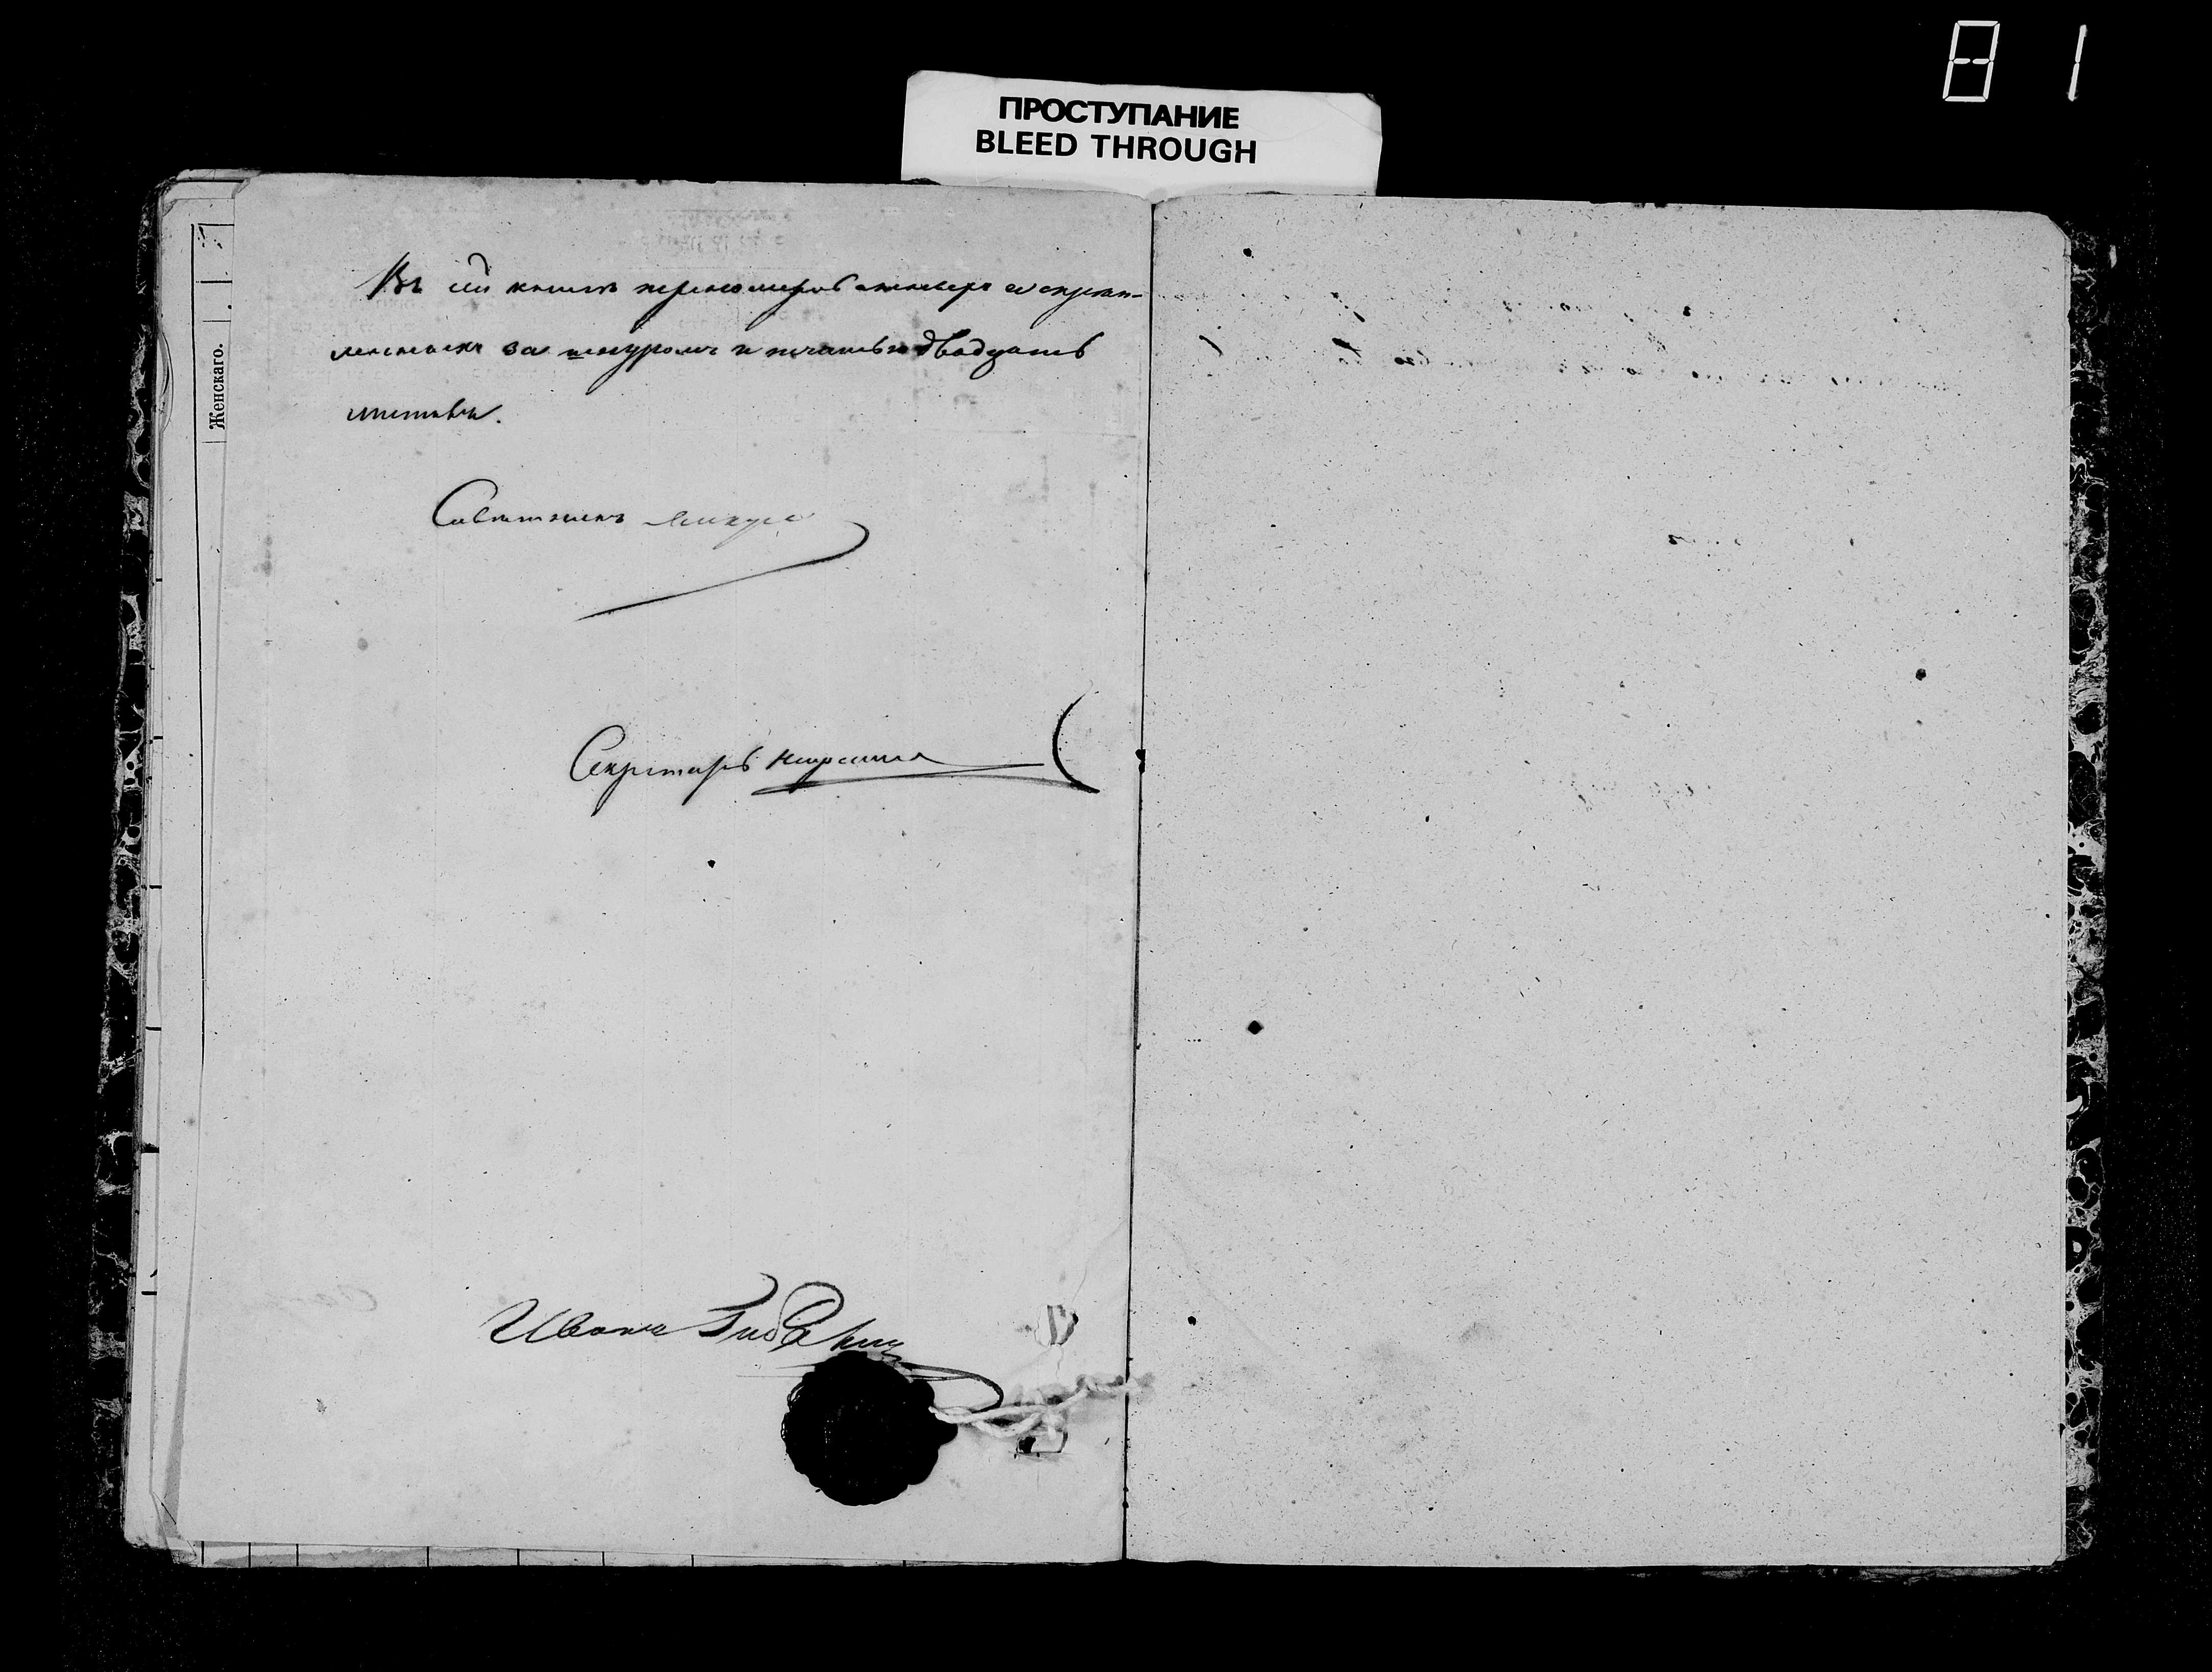 81
ПРОСТУПАНИЕ
BLEED THROUGH
Женскаго.
Въ сей книгѣ перенумерованныхъ и скрѣп-
ленныхъ за шнуромъ и печатью двадцать
листовъ.
Совѣтникъ
Секретарь
Иванъ